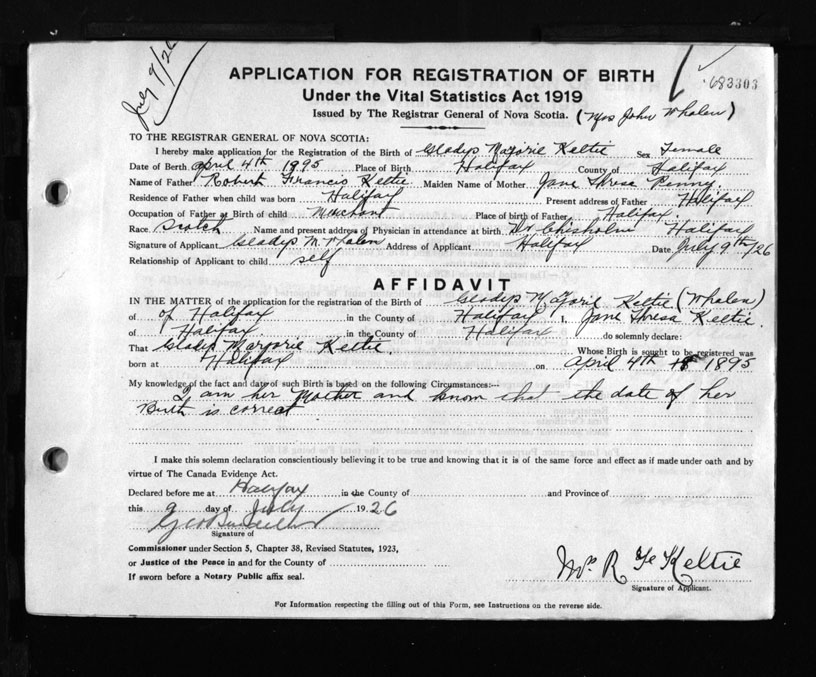 July 9/26
APPLICATION FOR REGISTRATION OF BIRTH
683303
Under the Vital Statistics Act 1919
Issued by The Registrar General of Nova Scotia. (Mrs John Whalen)
TO THE REGISTRAR GENERAL OF NOVA SCOTIA:
I hereby make application for the Registration of the Birth of Gladys Marjorie Keltie Sex Female
Date of Birth April 4th 1895 Place of Birth Halifax County of Halifax
Name of Father Robert Francis Keltie Maiden Name of Mother Jane Thresa Penny
Residence of Father when child was born Halifax Present address of Father Halifax
Occupation of Father at Birth of child Merchant Place of birth of Father Halifax
Race Scotch Name and present address of Physician in attendance at birth Dr Chisholm Halifax
Signature of Applicant Gladys M Whalen Address of Applicant Halifax Date July 9th/26
Relationship of Applicant to child self
AFFIDAVIT
IN THE MATTER of the application for the registration of the Birth of Gladys Marjorie Keltie (Whalen)
of of Halifax in the County of Halifax I, Jane Thresa Keltie
of Halifax in the County of Halifax do solemnly declare:
That Gladys Marjorie Keltie Whose Birth is sought to be registered was
born at Halifax on April 4th 1895
My knowledge of the fact and date of such Birth is based on the following Circumstances:--
I am her Mother and know that the date of her
Birth is correct
I make this solemn declaration conscientiously believing it to be true and knowing that it is of the same force and effect as if made under oath and by
virtue of The Canada Evidence Act.
Declared before me at Halifax in the County of and Province of
this 9 day of July 1926
Signature of
Commissioner under Section 5, Chapter 38, Revised Statutes, 1923,
or Justice of the Peace in and for the County of
If sworn before a Notary Public affix seal.
Mrs R Fe Keltie
Signature of Applicant.
For Information respecting the filling out of this Form, see Instructions on the reverse side.